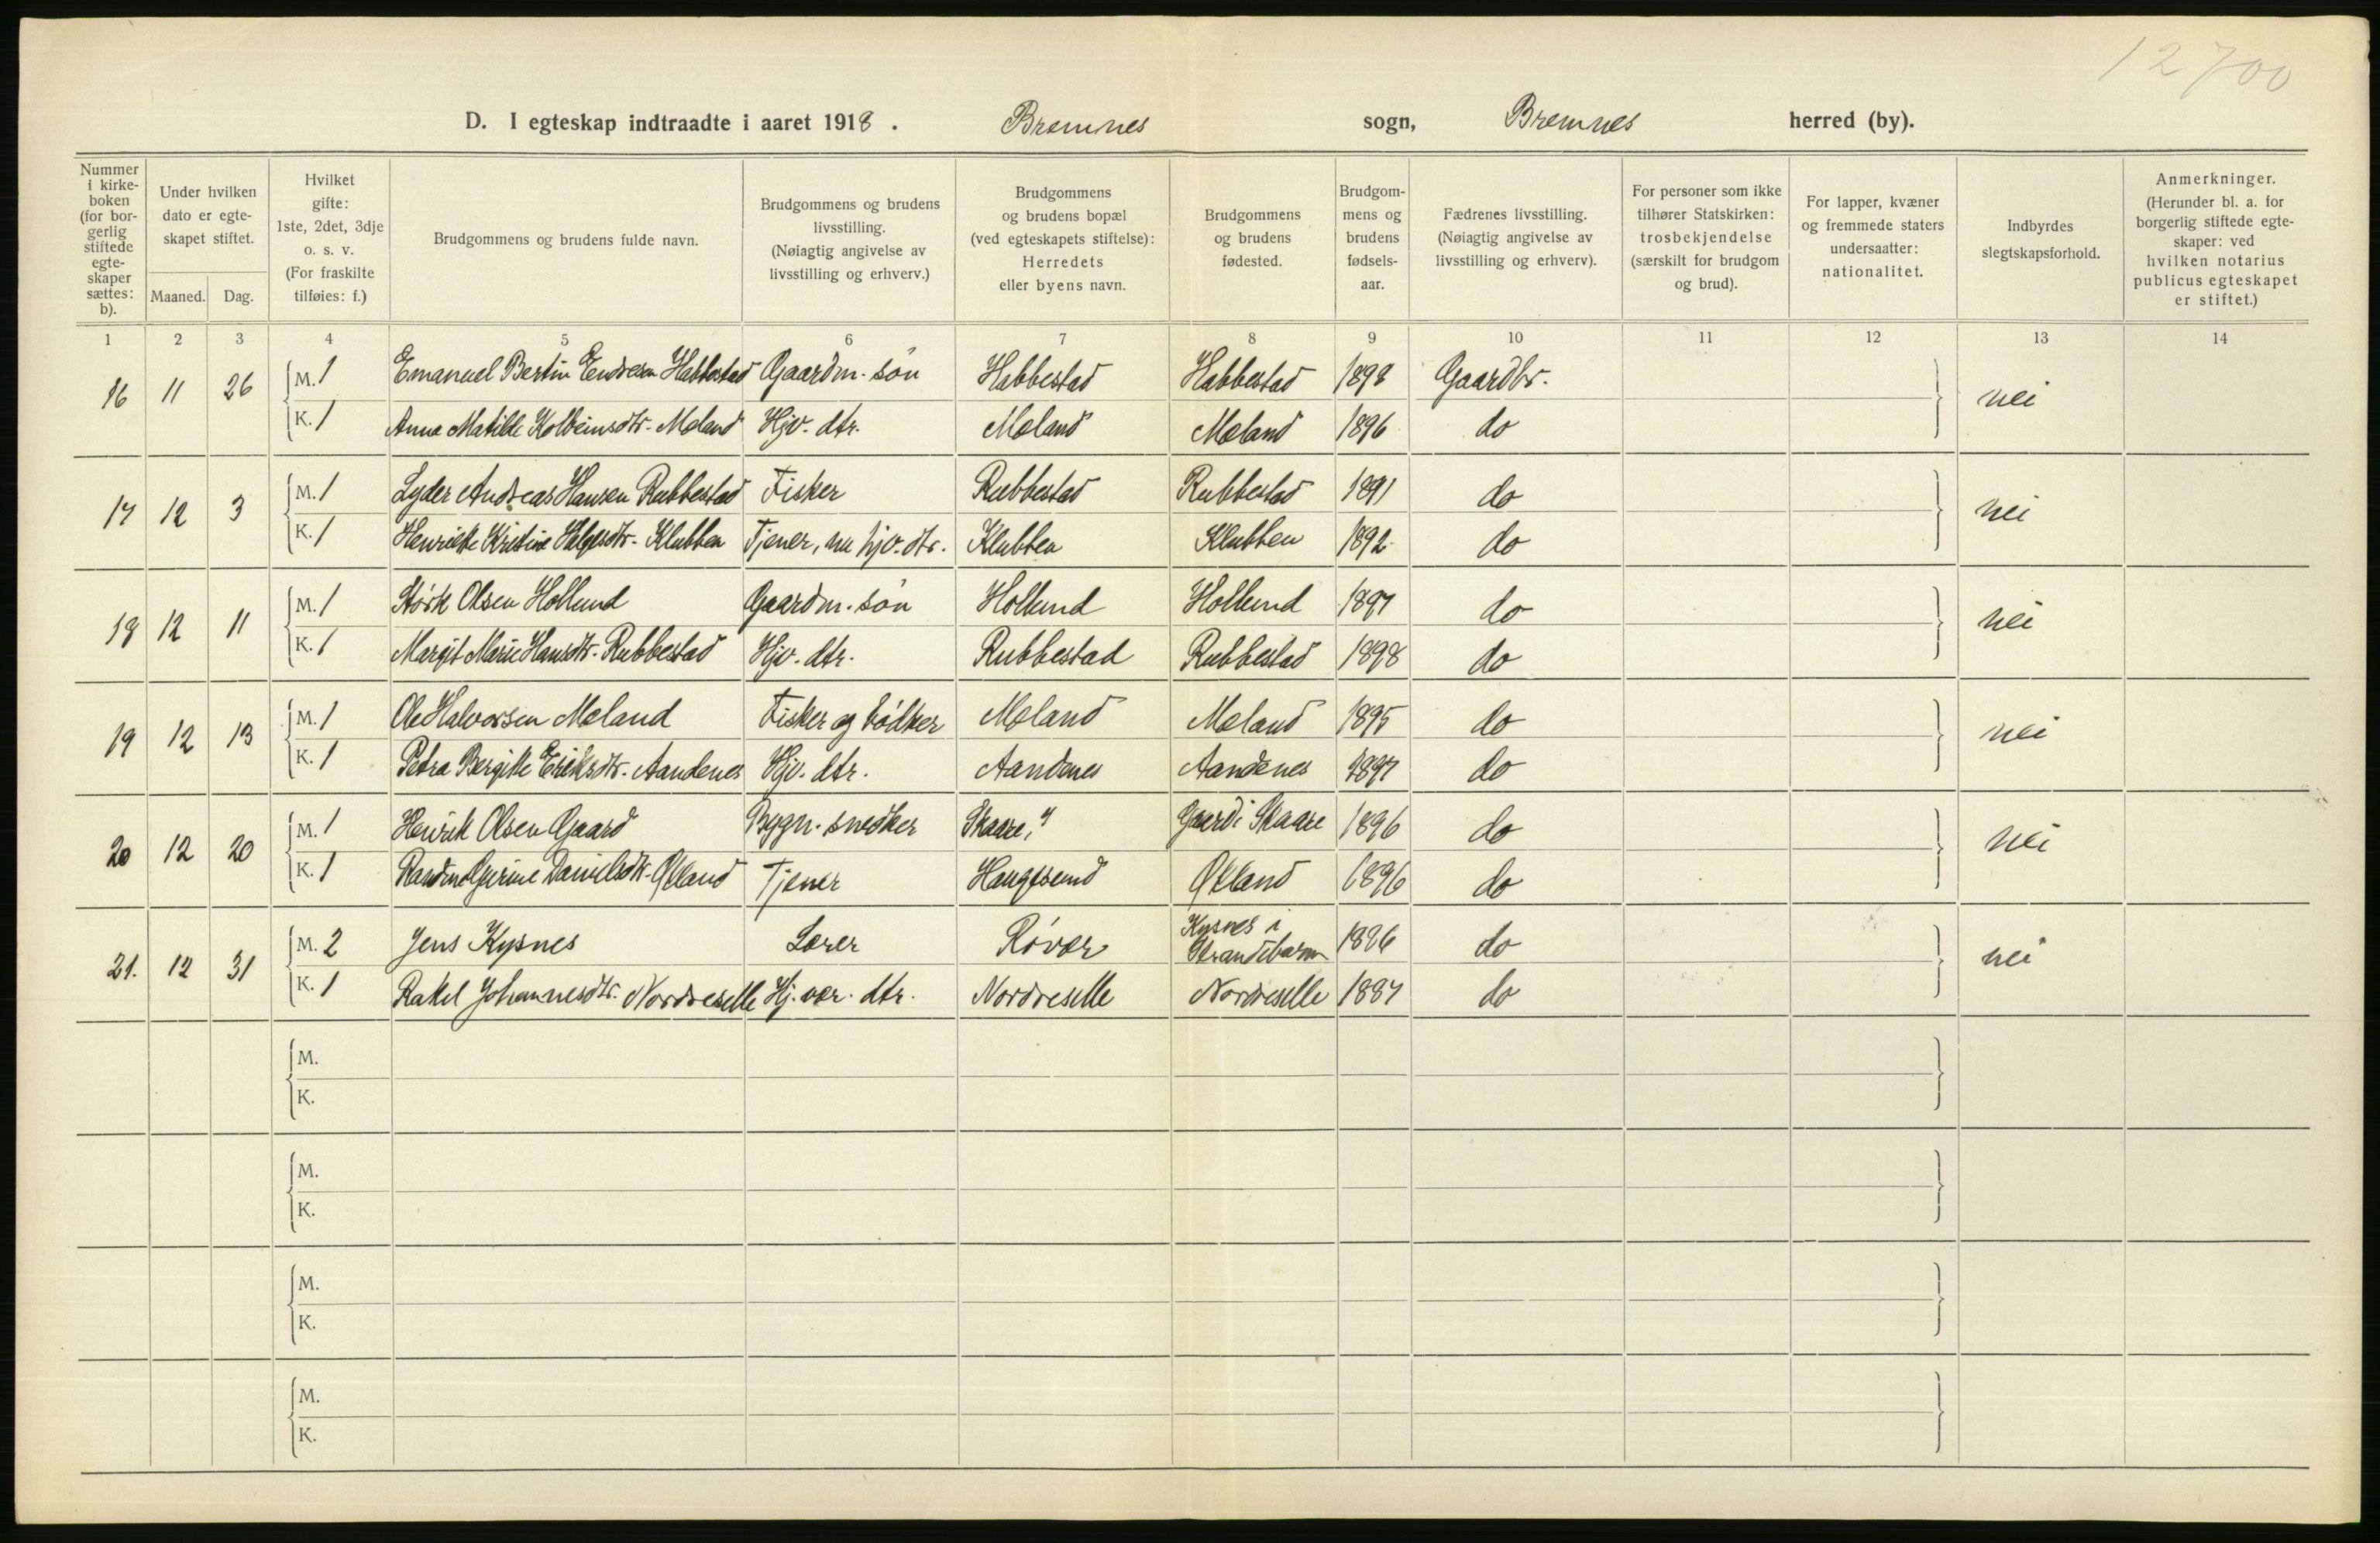 12700
D. I egteskap indtraadte i aaret 1918. Bremnes sogn, Bremnes herred (by).
Nummer i kirke-boken (for bor-gerlig stiftede egte-skaper sættes: b).
Under hvilken dato er egte-skapet stiftet.
Maaned. Dag.
Hvilket gifte: 1ste, 2det, 3dje o. s. v. (For fraskilte tilføies: f.)
Brudgommens og brudens fulde navn.
Brudgommens og brudens livsstilling. (Nøiagtig angivelse av livsstilling og erhverv.)
Brudgommens og brudens bopæl (ved egteskapets stiftelse): Herredets eller byens navn.
Brudgommens og brudens fødested.
Brudgom-mens og brudens fødsels-aar.
Fædrenes livsstilling. (Nøiagtig angivelse av livsstilling og erhverv).
For personer som ikke tilhører Statskirken: trosbekjendelse (særskilt for brudgom og brud).
For lapper, kvæner og fremmede staters undersaatter: nationalitet.
Indbyrdes slegtskapsforhold.
Anmerkninger. (Herunder bl. a. for borgerlig stiftede egte-skaper: ved hvilken notarius publicus egteskapet er stiftet.)
1 2 3 4 5 6 7 8 9 10 11 12 13 14
16 11 26 M. 1 Emanuel Bertin Endresen Habbestad Gaardm. søn Habbestad Habbestad 1898 Gaardbr. nei
K. 1 Anna Matilde Kolbeinsdtr. Meland Hjv. dtr. Meland Meland 1896 do
17 12 3 M. 1 Lyder Andreas Hansen Rubbestad Fisker Rubbestad Rubbestad 1891 do nei
K. 1 Henriette Kristine Helgesdtr. Klubben Tjener, nu hjv. dtr. Klubben Klubben 1892 do
18 12 11 M. 1 Størk Olsen Hollund Gaardm. søn Hollund Hollund 1897 do nei
K. 1 Margit Marie Hansdtr. Rubbestad Hjv. dtr. Rubbestad Rubbestad 1898 do
19 12 13 M. 1 Ole Halvorsen Meland Fisker og bøkker Meland Meland 1895 do nei
K. 1 Petra Bergitte Eriksdtr. Aandenes Hjv. dtr. Aandenes Aandenes 1897 do
20 12 20 M. 1 Henrik Olsen Gaard Bygn. snedker Skaare, " Gaard i Skaare 1896 do nei
K. 1 Gurine Danielsdtr. Økland Tjener Haugesund Økland 1896 do
21. 12 31 M. 2 Jens Kysnes Lærer Røvær Kysnes i Strandebarm 1886 do nei
K. 1 Rakel Johannesdtr. Nordreselle Hj. vær. dtr. Nordreselle Nordreselle 1887 do
M.
K.
M.
K.
M.
K.
M.
K.